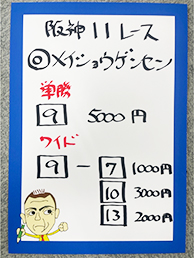 阪神11レース
◎メイショウゲンセン
単勝
9 5000円
ワイド
9 - 7 1000円
10 3000円
13 2000円